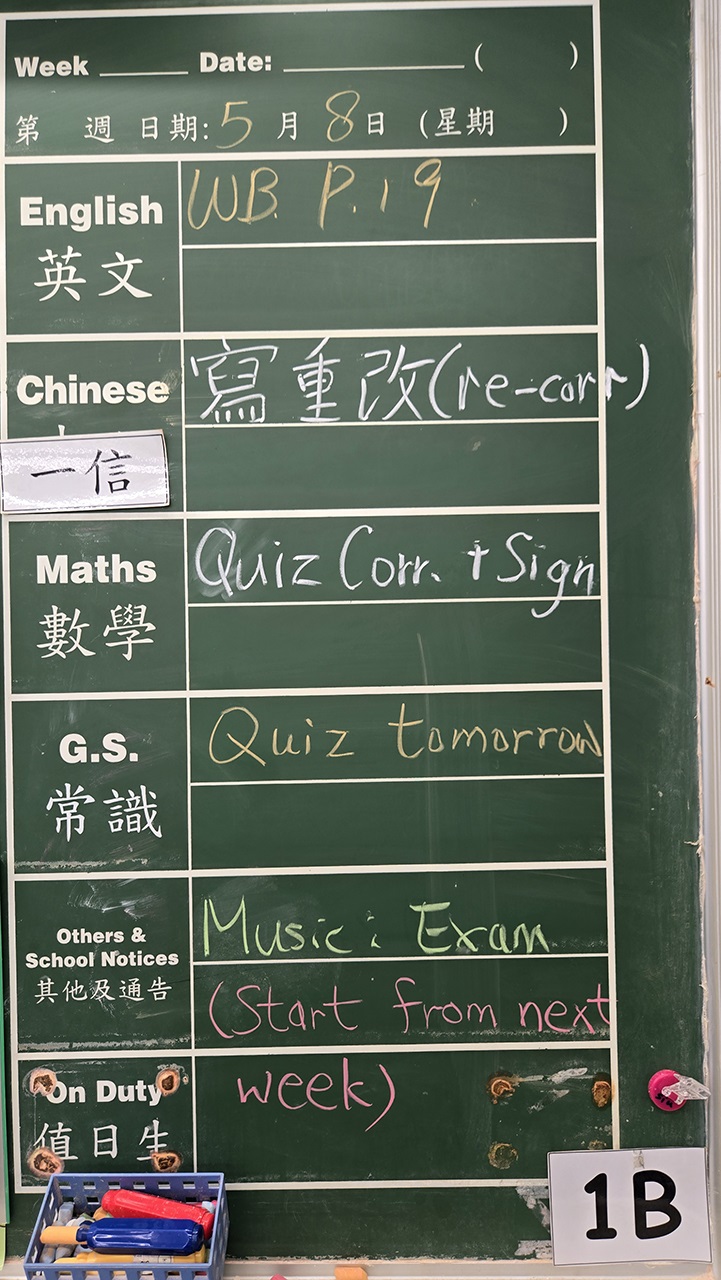 Week ______ Date: ____________ ( )
第 週 日期: 5 月 8 日 (星期 )
English WB. P.19
英文
Chinese 寫重改(re-corr)
一信
Maths Quiz Corr. + Sign
數學
G.S. Quiz tomorrow
常識
Others & Music: Exam
School Notices
其他及通告 (Start from next
On Duty week)
值日生
1B